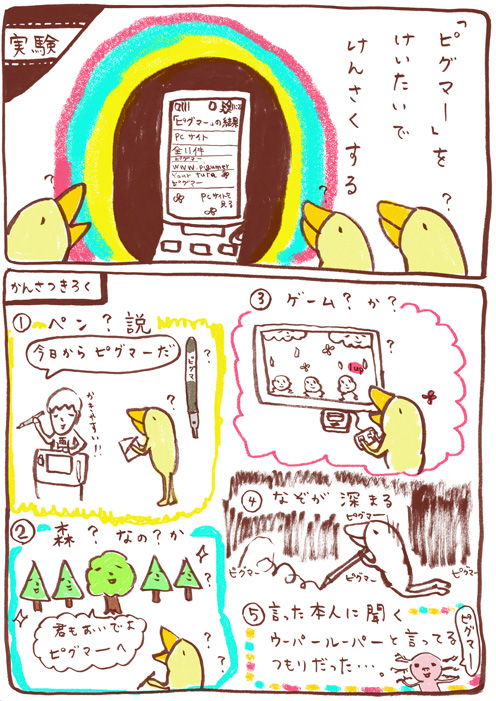 実験
「ピグマー」を
けいたいで
けんさくする
「ピグマー」の結果
PCサイト
全11件
ピグマー
www.pigumer
Your tura
ピグマー
PCサイトを
見る
?
?
?
かんさつきろく
① ペン?説
今日から ピグマーだ
かきやすい!!
ピグマー
?
?
② 森? なの?か
君もおいでよ
ピグマーへ
?
?
?
③ ゲーム?か?
1up
?
?
④ なぞが 深まる
ピグマー
ピグマー
ピグマー
ピグマー
⑤ 言った本人に聞く
ウーパールーパーと言ってる
つもりだった…。
ピグマー